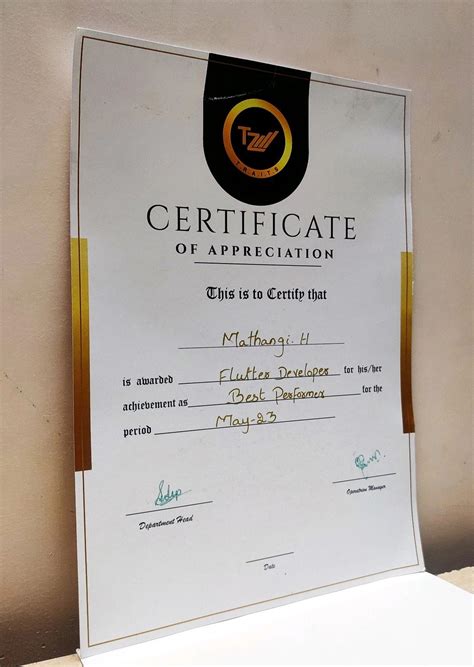 TZW
TRAITS
CERTIFICATE
OF APPRECIATION
This is to Certify that
Mathangi. H
is awarded Flutter Developer for his/her
achievement as Best Performer for the
period May-23
Department Head
Operation Manager
Date